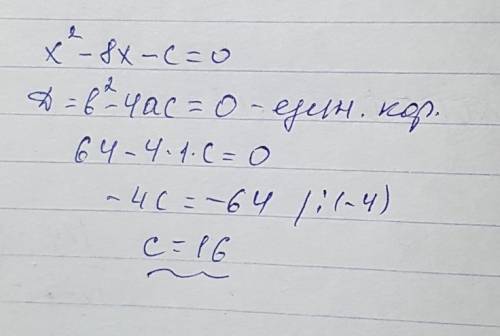 x² - 8x - c = 0
D = b² - 4ac = 0 - един. кор.
64 - 4·1·c = 0
-4c = -64 /:(-4)
c = 16